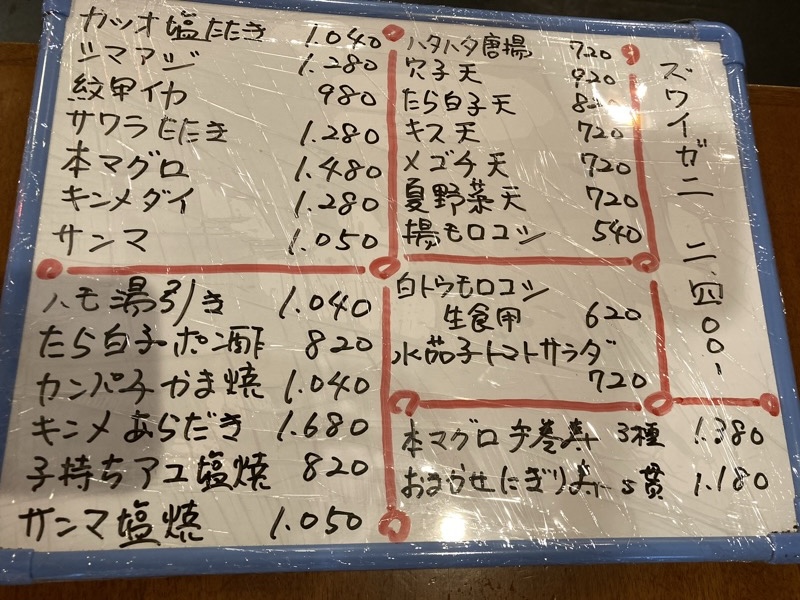 カツオ塩たたき 1.040
シマアジ 1.280
紋甲イカ 980
サワラたたき 1.280
本マグロ 1.480
キンメダイ 1.280
サンマ 1.050
ハモ湯引き 1.040
たら白子ポン酢 820
カンパチかま焼 1.040
キンメあらだき 1.680
子持ちアユ塩焼 820
サンマ塩焼 1.050
ハタハタ唐揚 720
穴子天 920
たら白子天
キス天 720
メゴチ天 720
夏野菜天 720
揚モロコシ 540
白トウモロコシ
生食用 620
水茄子トマトサラダ
720
本マグロ手巻寿し 3種 1.380
おまかせにぎり寿し 5貫 1.180
ズワイガニ 二、四〇〇-